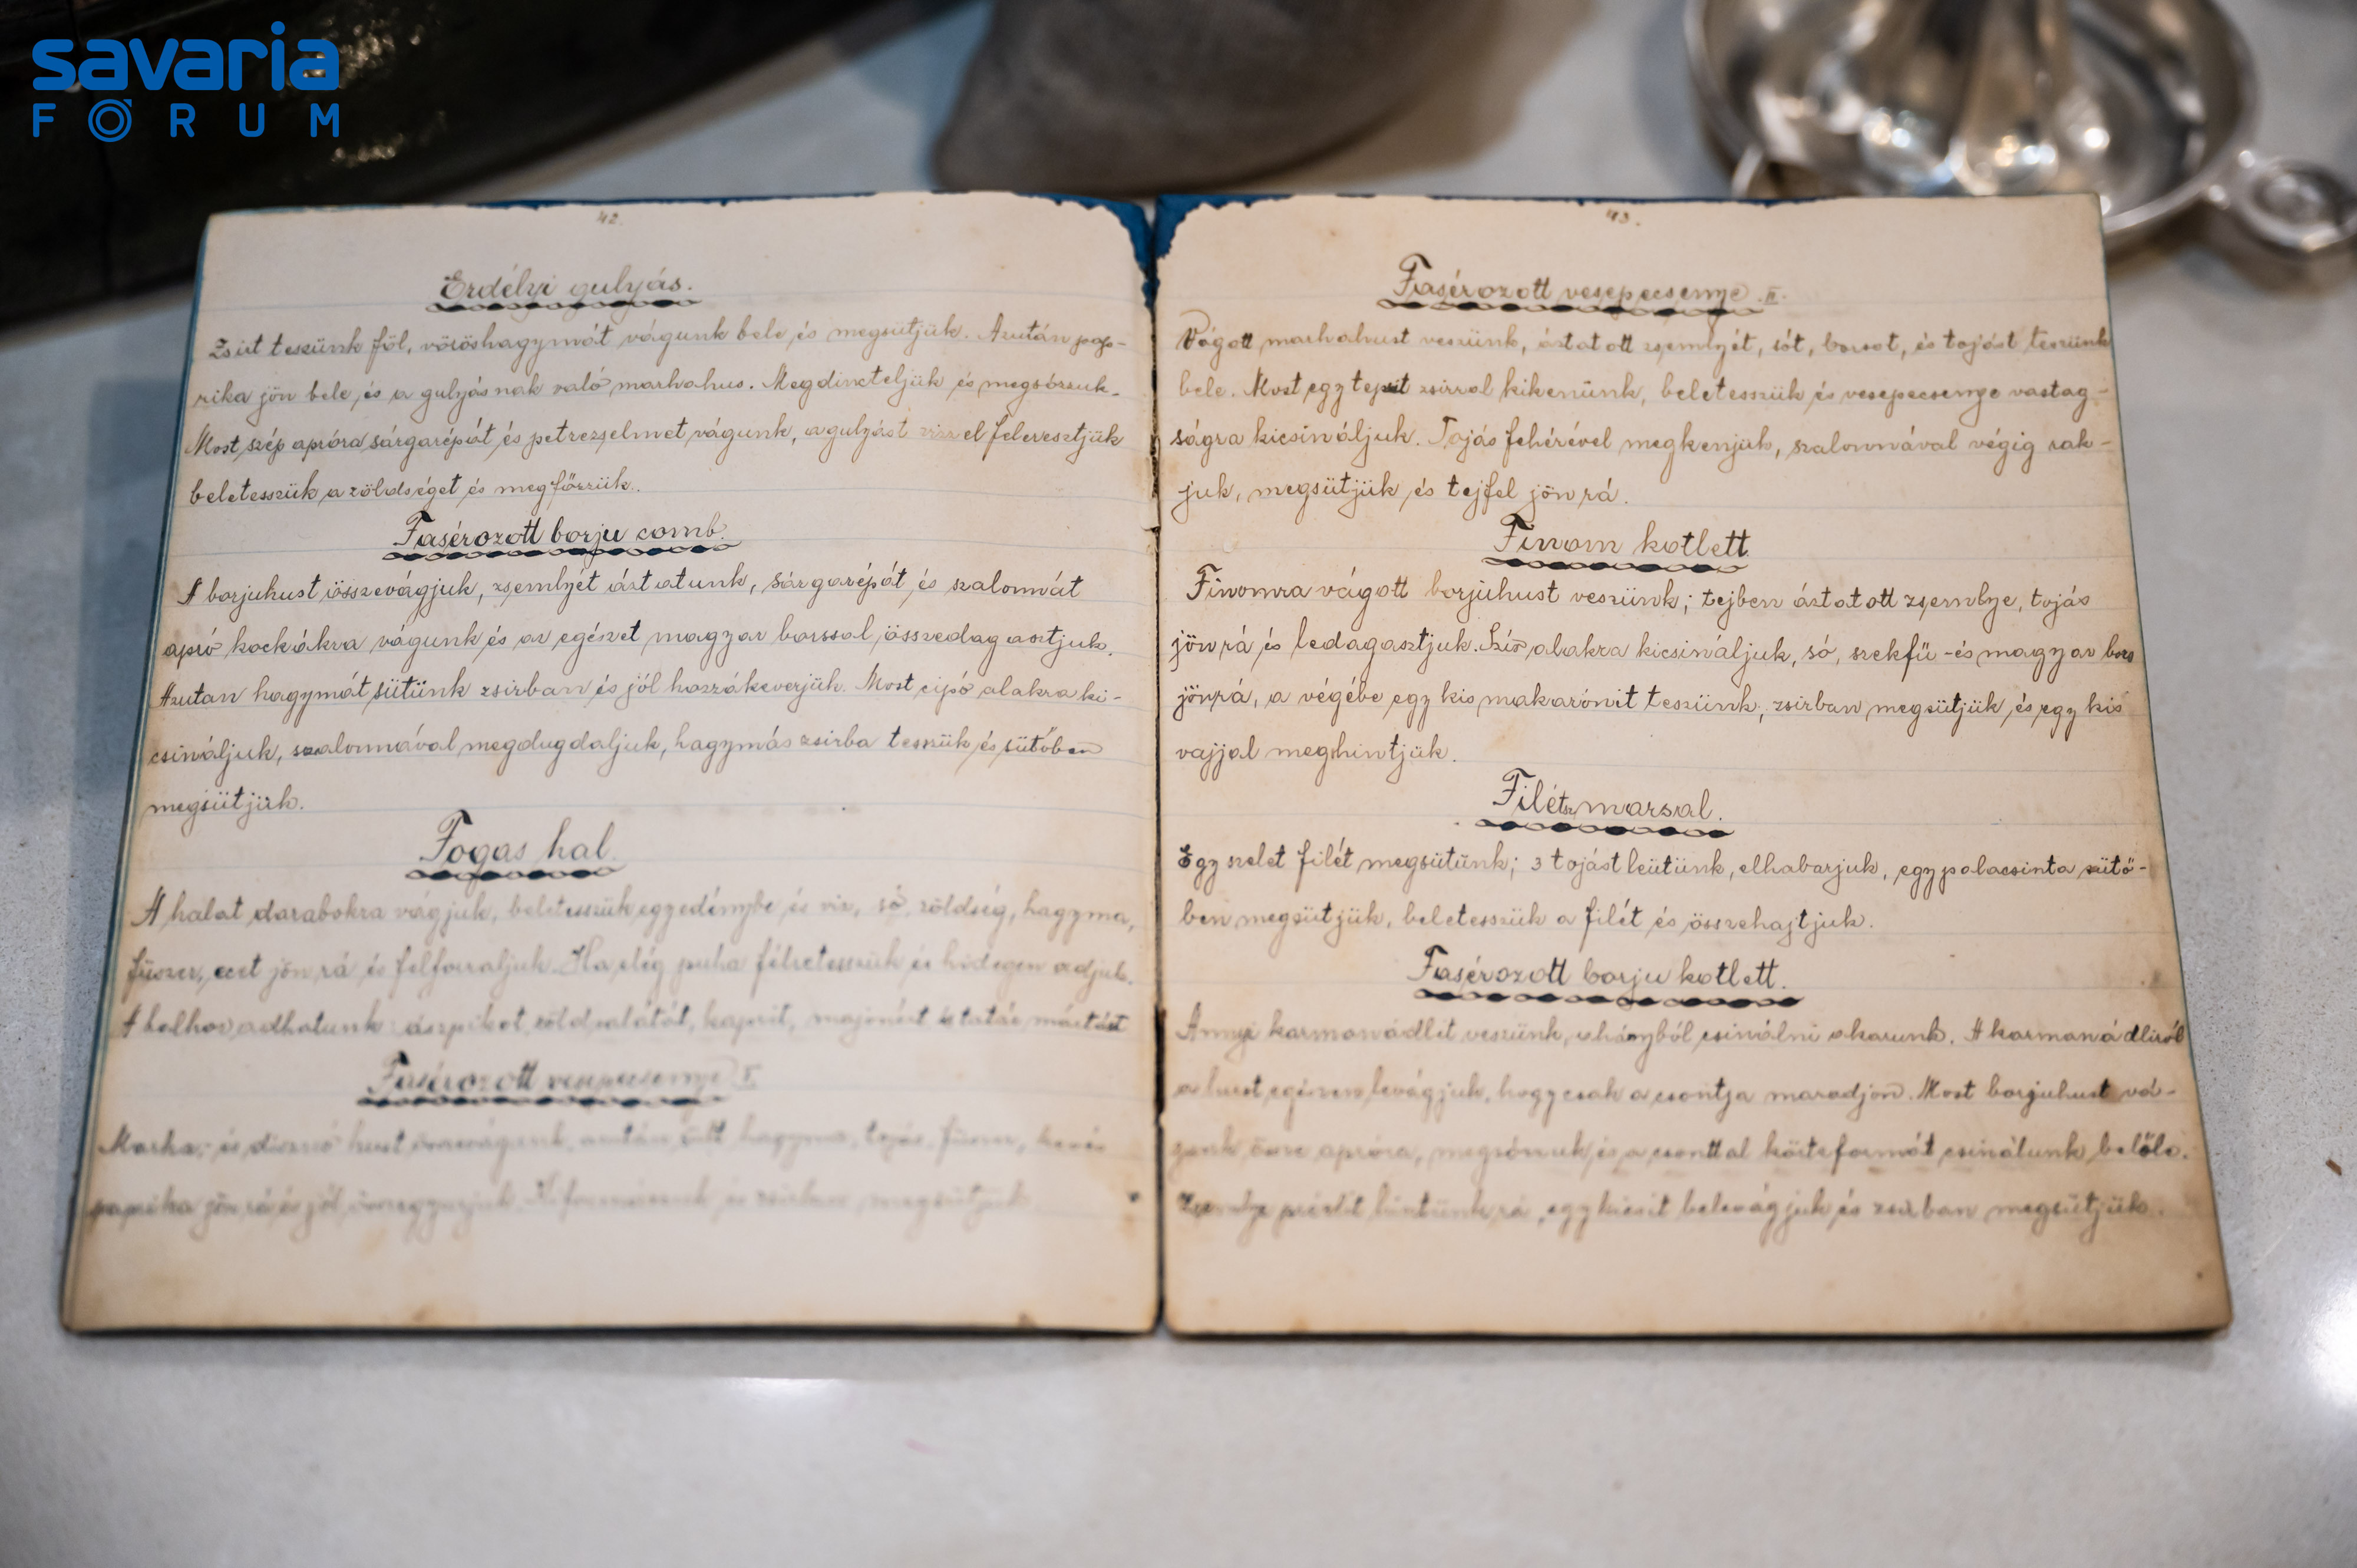 savaria
FÓRUM
42.
Erdélyi gulyás.
Zsirt teszünk föl, vöröshagymát vágunk bele és megsütjük. Azután pap-
rika jön bele és a gulyásnak való marhahus. Megdinszteljük és megsózzuk.
Most szép apróra sárgarépát és petrezselmet vágunk, a gulyást vizzel feleresztjük
beletesszük a zöldséget és megfőzzük.
Fasérozott borju comb.
A borjuhust összevágjuk, zsemlyét áztatunk, sárgarépát és szalonnát
apró kockákra vágunk és az egészet magyar borssal összedagasztjuk.
Azutan hagymát sütünk zsirban és jól hozzákeverjük. Most cipó alakra ki-
csináljuk, szalonnával megdugdaljuk, hagymás zsirba tesszük és sütőben
megsütjük.
Fogas hal.
A halat darabokra vágjuk, beletesszük egy edénybe és viz, só, zöldség, hagyma,
fűszer, ecet jön rá és felforraljuk. Ha elég puha félretesszük és hidegen adjuk.
A halhoz adhatunk aszpikot, zöldsalátát, kaprit, majonézt és tatár mártást
Fasérozott vesepecsenye I.
Marha- és disznó hust összevágunk, azután sült hagyma, tojás, fűszer, kevés
paprika jön rá és jól összegyurjuk. és zsirban megsütjük
43.
Fasérozott vesepecsenye II.
Vágott marhahust veszünk, áztatott zsemlyét, sót, borsot, és tojást teszünk
bele. Most egy tepsit zsirral kikenünk, beletesszük és vesepecsenye vastag-
ságra kicsináljuk. Tojás fehérével megkenjük, szalonnával végig rak-
juk, megsütjük és tejfel jön rá.
Finom kotlett
Finomra vágott borjuhust veszünk; tejben áztatott zsemlye, tojás
jön rá és ledagasztjuk. Szív alakra kicsináljuk, só, szekfű-és magyar bors
jön rá, a végébe egy kis makarónit teszünk, zsirban megsütjük és egy kis
vajjal meghintjük.
Filét marsal.
Egy szelet filét megsütünk; 3 tojást leütünk, elhabarjuk, egy palacsinta sütő-
ben megsütjük, beletesszük a filét és összehajtjuk.
Fasérozott borju kotlett.
Annyi karmonádlit veszünk, ahányból csinálni akarunk. A karmanádliról
a hust egészen levágjuk, hogy csak a csontja maradjon. Most borjuhust vá-
gunk össze apróra, megsózzuk és a csonttal körteformát csinálunk belőle.
Zsemlye prézlit hintünk rá, egy kicsit belevágjuk és zsirban megsütjük.